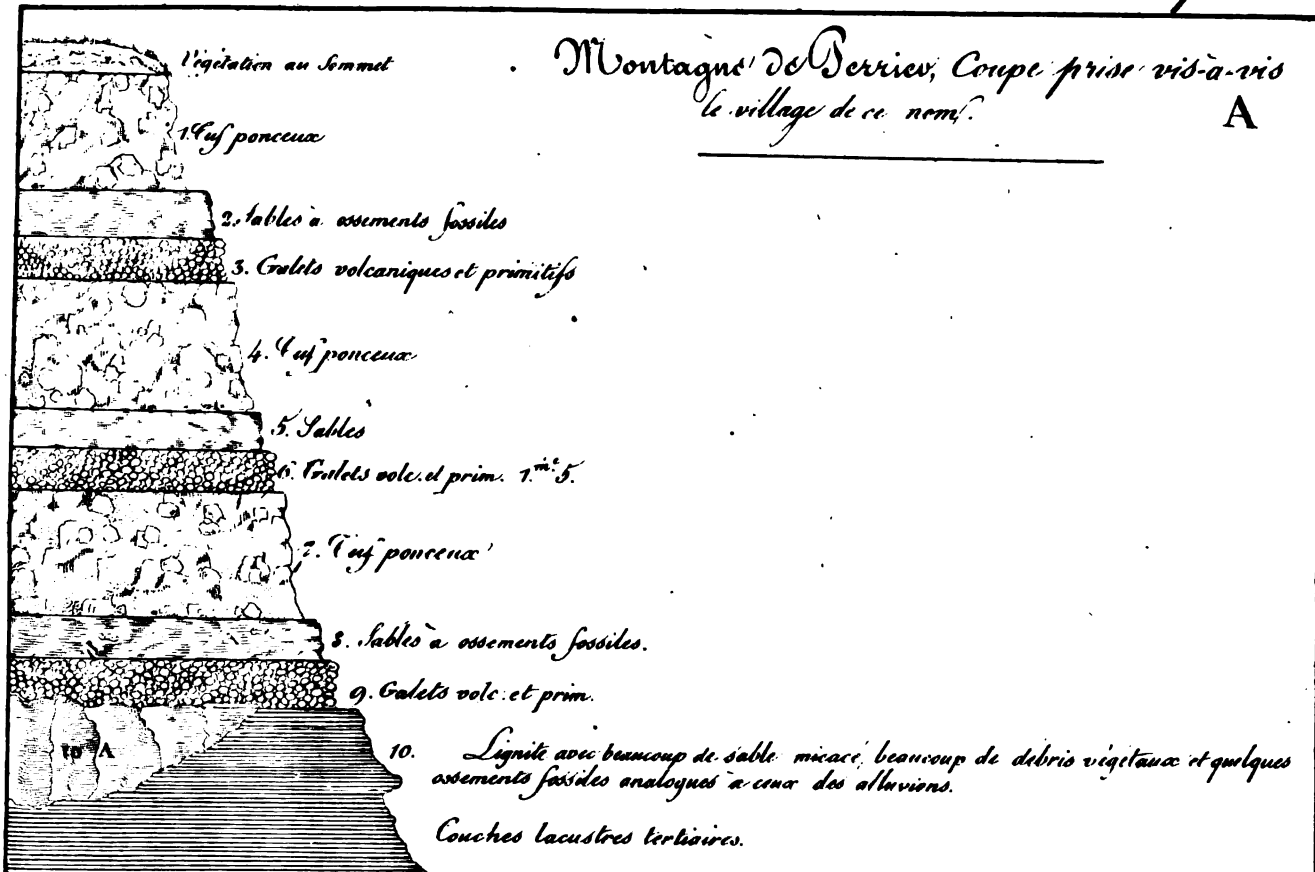 Montagne de Perrier, Coupe prise vis-à-vis
le village de ce nom.
A
Végétation au Sommet
1. Tuf ponceux
2. Sables à ossements fossiles
3. Galets volcaniques et primitifs
4. Tuf ponceux
5. Sables
6. Galets volc. et prim. 1.me 5.
7. Tuf ponceux
8. Sables à ossements fossiles.
9. Galets volc. et prim.
10 A
10. Lignite avec beaucoup de sable micacé, beaucoup de debris végétaux et quelques
ossements fossiles analogues à ceux des alluvions.
Couches lacustres tertiaires.